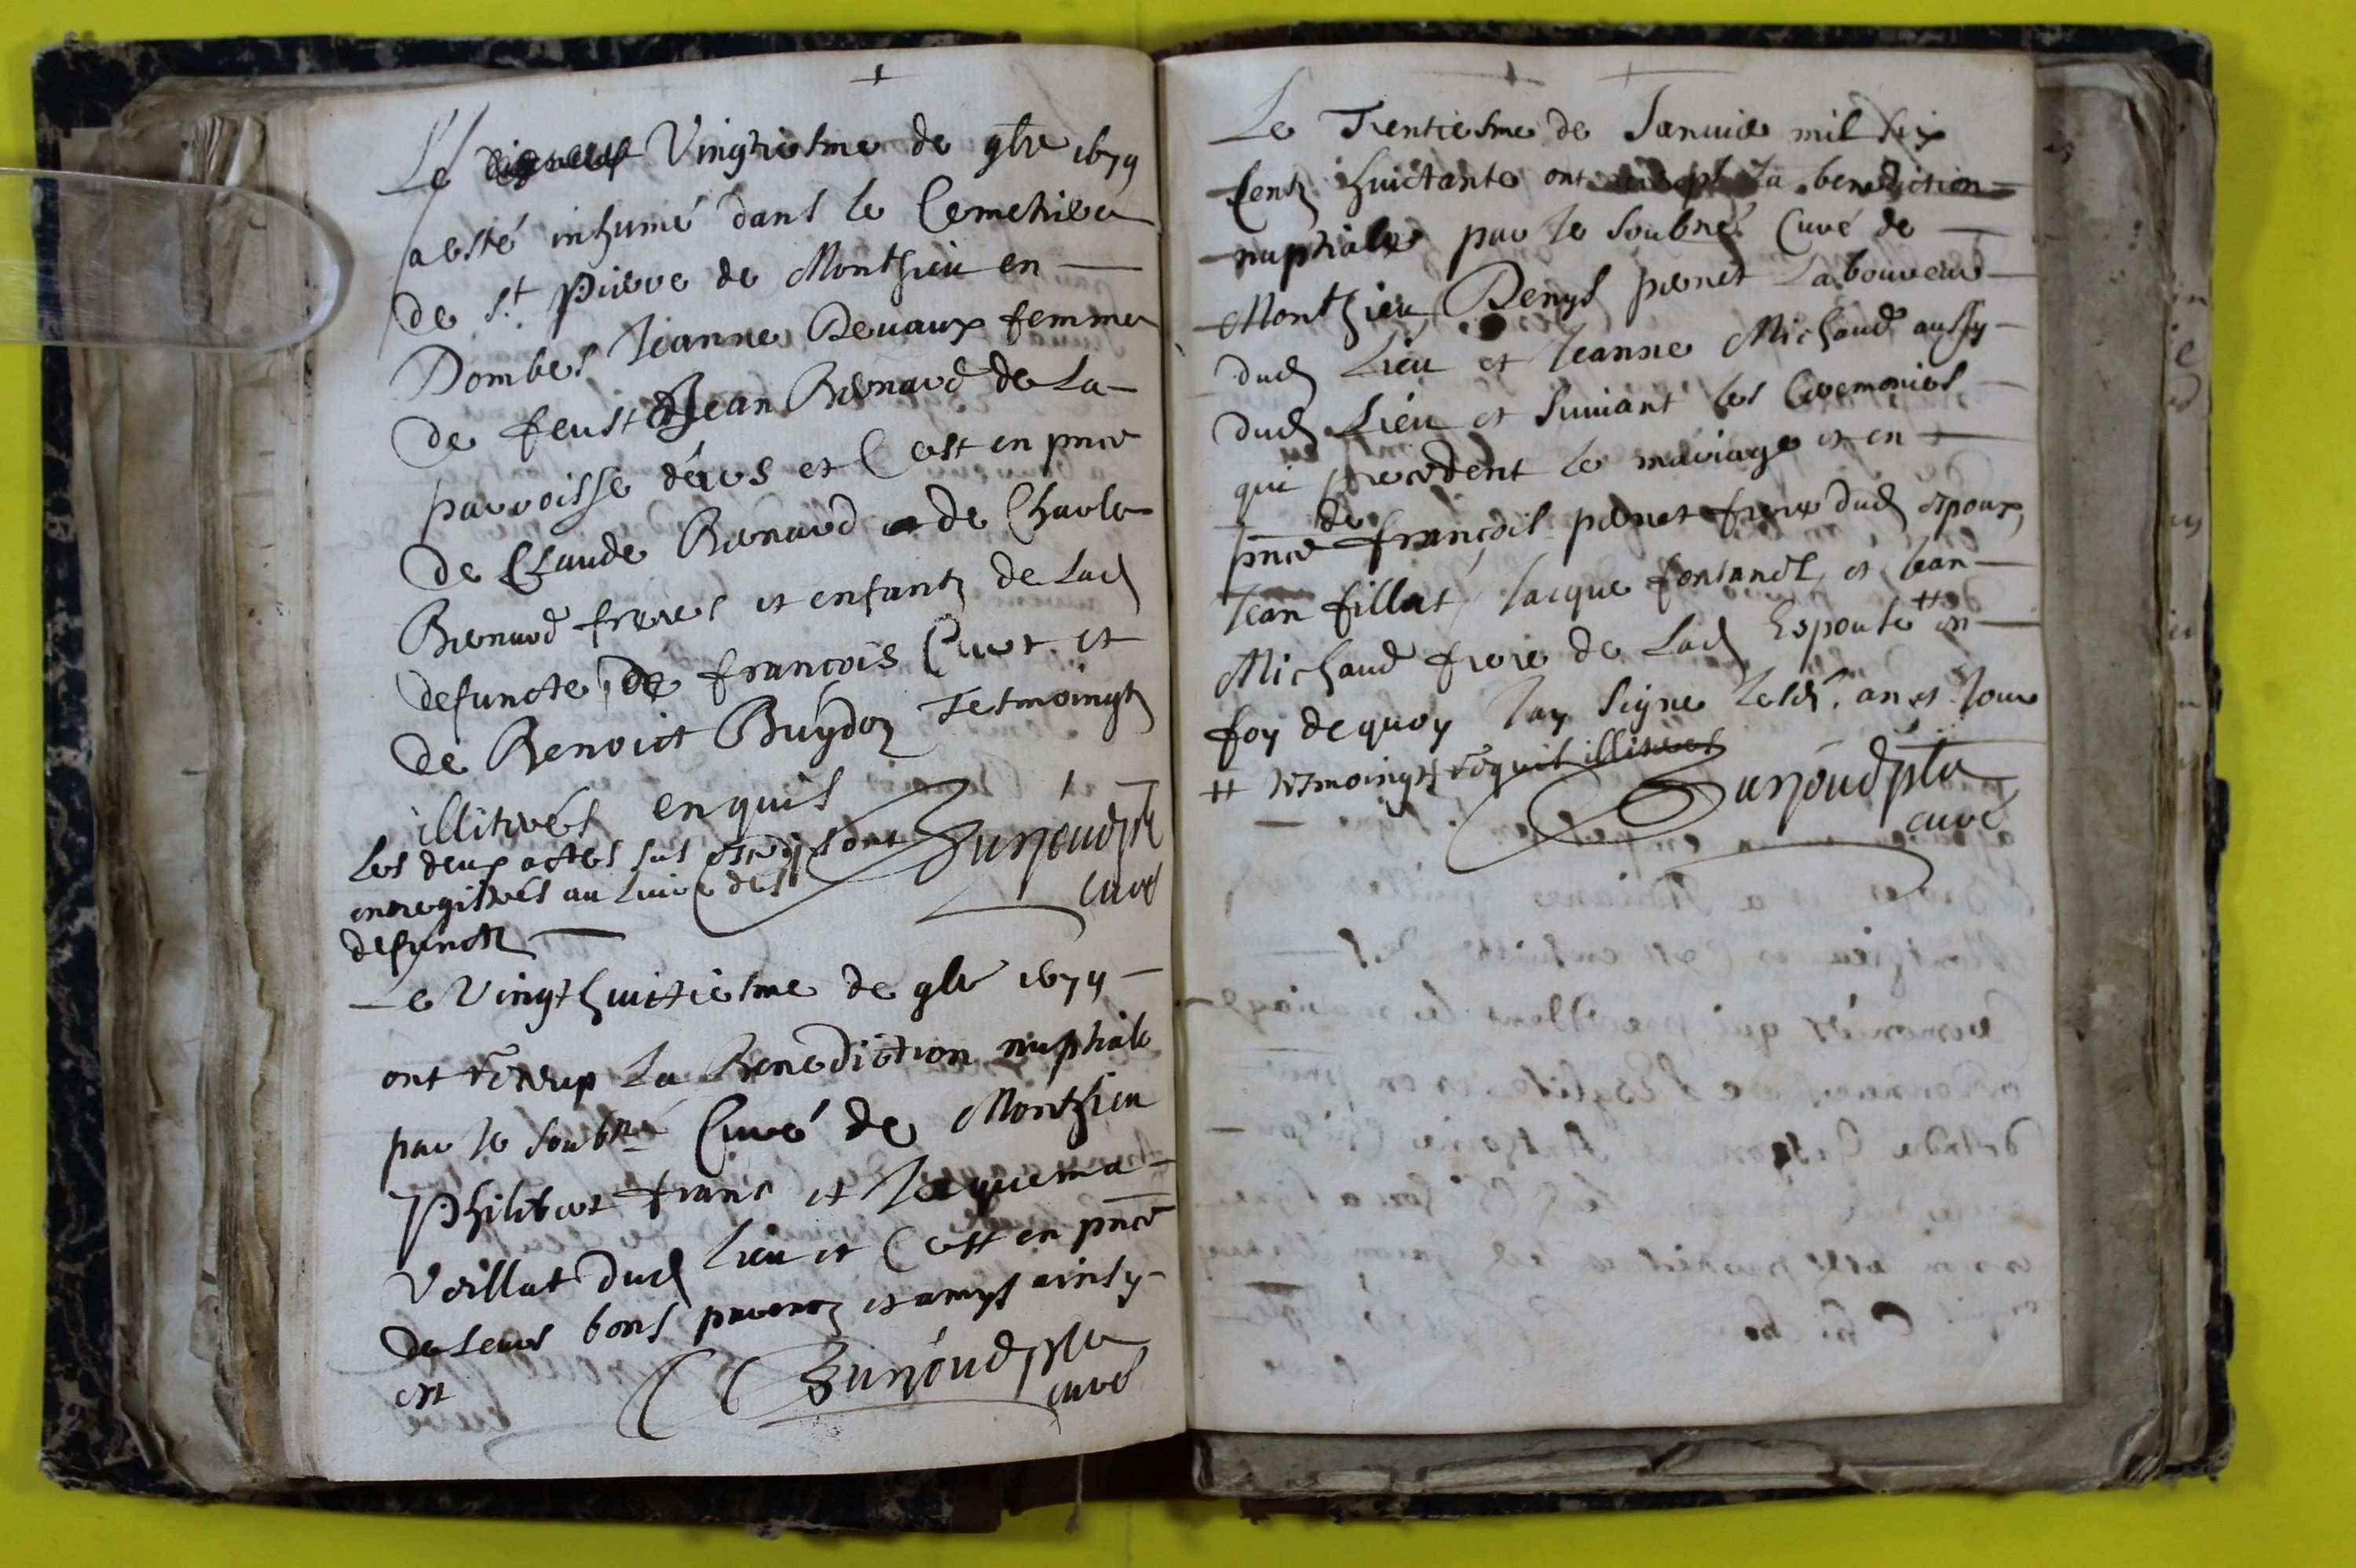 Le Vingtiesme de 9bre 1679
a esté inhumé dans le Cemetiere
de St Pierre de Monthieu en
Dombes Jeanne Devaux femme
de feust Jean Renard de La
parroisse dárs et Cest en pnce
de Claude Renard et de Charle
Renard freres et enfantz de Lad
defuncte, de francois Curt et
de Benoict Buydon Tesmoingtz
illiterés enquis
Les deux actes sus escrijt sont
enregistrés au Livre des
defunctz
curé
Le Vingt huitiesme de 9bre 1679
ont receup La Benediction nuptiale
par le soubné Curé de Monthieu
Philibert franc et Jaquema
Veillat dud Lieu et Cest en pnce
de leurs bons parentz et amys ainsy
est
curé
Le Trentiesme de Januier mil six
Centz huictante ont receupt La benediction
nuptiale par le soubné Curé de
Monthieu, Denys pernet Laboureur
dud Lieu et Jeanne Michaud aussy
dud Lieu et suivant les Ceremonies
qui precedent le mariage et en
pnce de françois pernet frere dud espoux,
Jean fillat, Jacque fontanel, et Jean
Michaud frere de Lad Espouse # en
foy dequoy Jay signe lesd. an et Jour
# tesmoingtz requis illiteres
curé